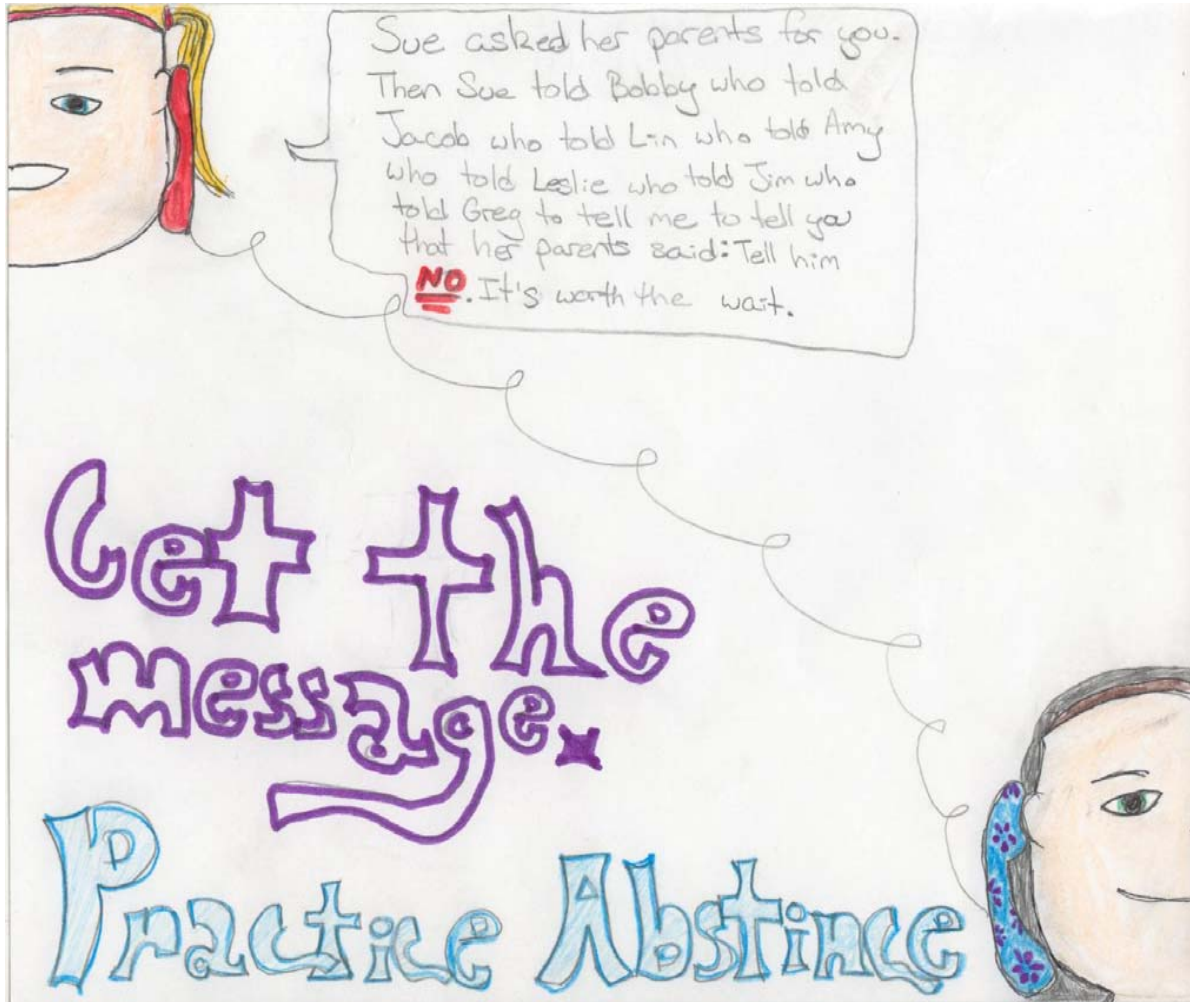 Sue asked her parents for you.
Then Sue told Bobby who told
Jacob who told Lin who told Amy
who told Leslie who told Jim who
told Greg to tell me to tell you
that her parents said: Tell him
NO. It's worth the wait.
Get the
message.
Practice Abstince